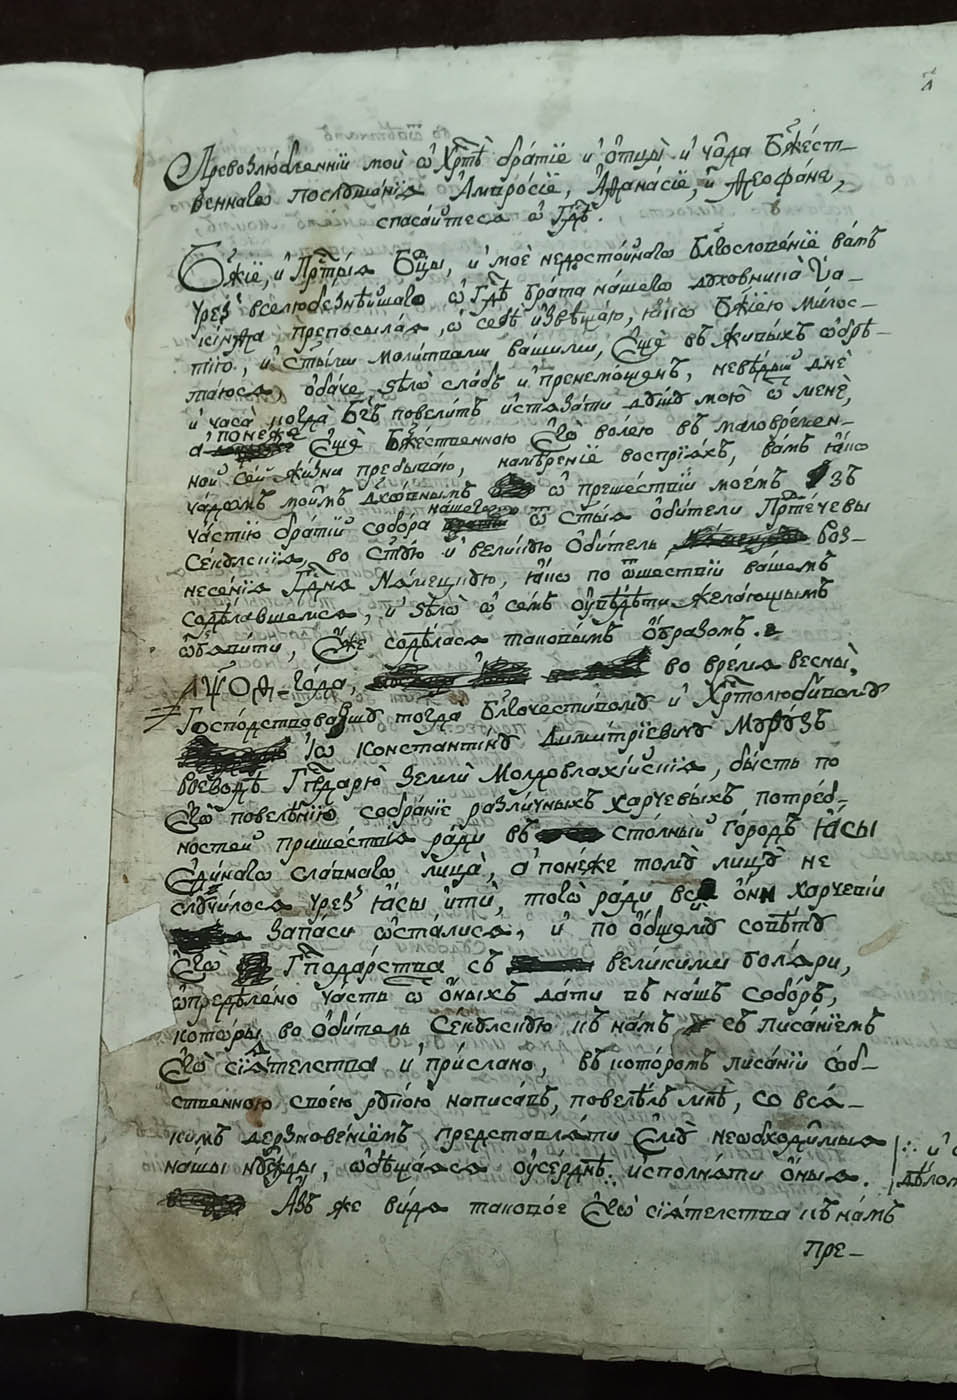 а҃
Превозлюбленнїи мои ѡ Хрⷭ҇тѣ братїе и ѻтцы̀ и ча̑да Бж҃е́ст-
веннагѡ послꙋша́нїѧ А҆мвро́сїе, А҆ѳана́сїе, и҆ Ѳеофа́не,
спаса́йтесѧ ѡ Гдⷭ҇ѣ.
Бж҃їе, и҆ Прⷭ҇ты́ѧ Бц҃ы, и҆ моѐ недосто́йнагѡ бл҃гослове́нїе ва́мъ
чрез̾ вселюбезнѣ́йшагѡ ѡ Гдⷭ҇ѣ бра́та на́шегѡ дꙋховника̀ І҆ѡа-
ки́нѳа препосыла́ѧ, ѡ себѣ̀ и҆звѣща́ю, ꙗ҆́кѡ Бж҃їею ми́лос-
тїю, и҆ ст҃ы́ми моли́твами ва́шими, Е҆щѐ въ живы́хъ ѡбрѣ-
та́юсѧ, ѻ҆ба́че ѕѣлѡ̀ сла́бъ и҆ пренемощенъ, невѣ́дый днѐ
и҆ часа̀ когда̀ Бг҃ъ повели́тъ и҆стѧза́ти дꙋ́шꙋ мою̀ ѿ менє̀,
а҆ поне́же Е҆щѐ Бж҃е́ственною Е҆гѡ̀ во́лею въ маловре́мен-
ной се́й жи́зни пребыва́ю, намѣ́ренїе воспрїѧ́хъ, ва́мъ ꙗ҆́кѡ
ча́дѡмъ мои́мъ дх҃о́внымъ ѡ преше́ствїи мое́мъ з̾
ча́стїю бра́тїй собо́ра на́шегѡ ѿ ст҃ы́ѧ ѻби́тели Прⷣте́чевы
Се́кꙋлскїѧ, во ст҃ꙋ́ю и҆ вели́кꙋю ѻ҆би́тель Воз-
несе́нїѧ Гдⷭ҇нѧ Нѧ́мецкꙋю, ꙗ҆́кѡ по ѿше́ствїи ва́шемъ
содѣ́лавшемсѧ, и҆ ѕѣлѡ̀ ѡ се́мъ ᲂу҆вѣ́дѣти жела́ющымъ
ѡб̾ѧви́ти, Е҆́же содѣ́ласѧ таковы́мъ ѻ҆́бразомъ.
҂аѱо҃ѳ- го́да, во вре́мѧ весны̀,
Госпо́дствовавшꙋ тогда̀ бл҃гочести́вомꙋ и҆ Хрⷭ҇толюби́вомꙋ
І҆ѡ Константі́нꙋ Дими́трїевичꙋ Мꙋрꙋ́зъ
воево́дѣ Гпⷭ҇дарю̀ землѝ Молдовлахі́йскїѧ, бы́сть по
Е҆гѡ̀ повелѣ́нїю собра́нїе разли́чныхъ харчевы́хъ потре́б-
ностей прише́ствїѧ ра́ди въ сто́лный го́родъ Ꙗ҆́сы
Е҆ди́нагѡ сла́внагѡ лица̀, а҆ поне́же томꙋ̀ лицꙋ̀ не
слꙋчи́лосѧ чрез̾ Ꙗ҆́сы и҆тѝ, тогѡ̀ ра́ди всѝ ѻ҆нѝ харче́вїи
запа́си ѡста́лисѧ, и҆ по ѻ҆́бщемꙋ совѣ́тꙋ
Е҆гѡ̀ Гⷭ҇пода́рства съ вели́кими болѧ́ри,
ѡпредѣ́лено ча́сть ѿ ѻ҆́ныхъ да́ти въ на́шъ собо́ръ,
кото́ры во ѻ҆би́тель Се́кꙋлскꙋю къ на́мъ съ писа́нїемъ
Е҆гѡ̀ сїѧ́телства и҆ при́слано, въ кото́ромъ писа́нїи со́б-
ственною свое́ю рꙋко́ю написа́въ, повелѣ́лъ мнѣ̀, со всѧ́-
кимъ дерзнове́нїемъ представлѧ́ти Е҆мꙋ̀ неѡбходи́мыѧ
на́шы нꙋ́жды, ѡбѣща́ѧсѧ ᲂу҆се́рднѣ ⁖ и҆сполнѧ́ти ѻ҆́ныѧ. ⁖ и҆
дѣ́лом
А҆́зъ же ви́дѧ таково́е Е҆гѡ̀ сїѧ́телства къ на́мъ
пре-